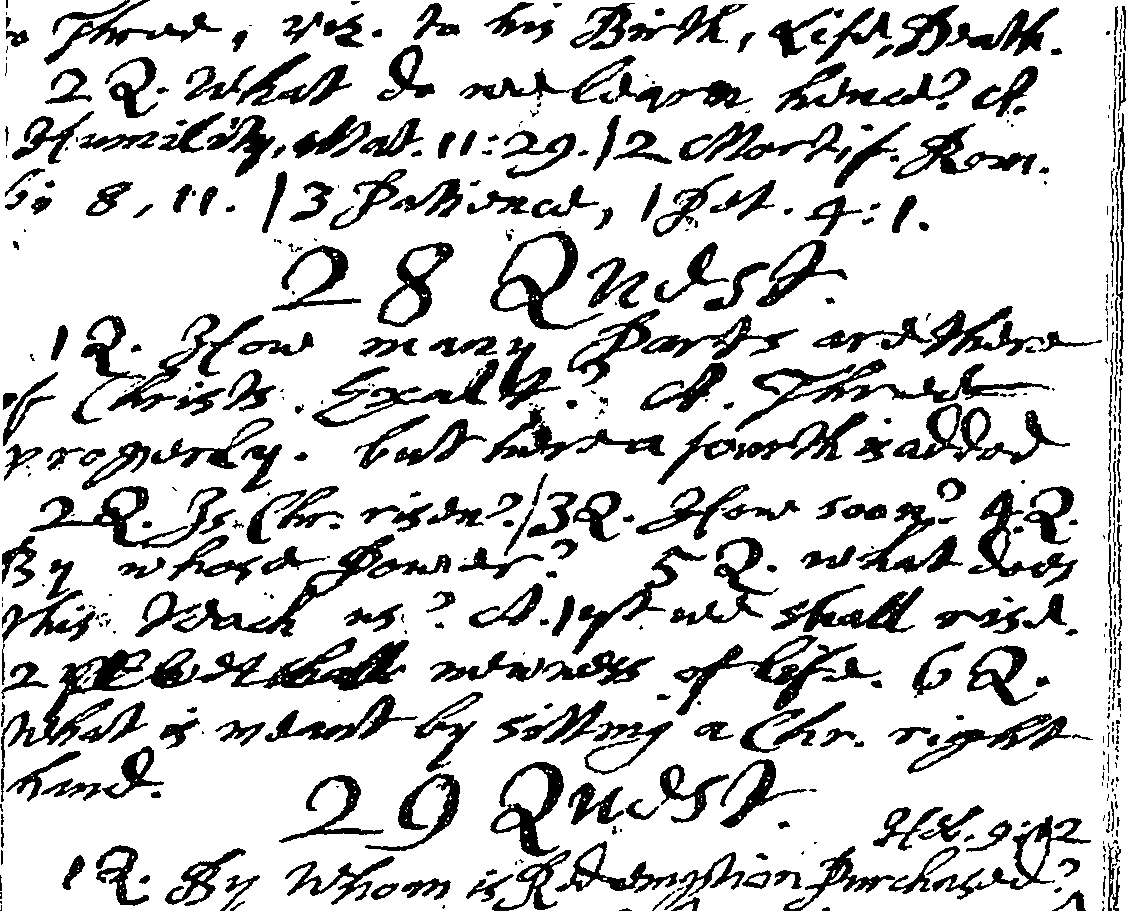 Three, viz. to his Birth, Life, Death.
2 Q. What do we learn hence? A.
Humility, Mat. 11:29. | 2 Mortif. Rom.
8, 11. | 3 Patience, 1 Pet. 4:1.
28 Quest.
1 Q. How many Parts are there
of Christs Exalt? A. Three
properly. but here a fourth is added
2 Q. Is Chr. risen? | 3 Q. How soon? 4 Q.
By whose Power? 5 Q. what does
this teach us? A. 1 yt we shall rise.
2 newness of life. 6 Q.
What is meant by sitting a Chr. right
hand.
29 Quest.
Heb. 9:12
1 Q. By Whom is Redemption Purchased?